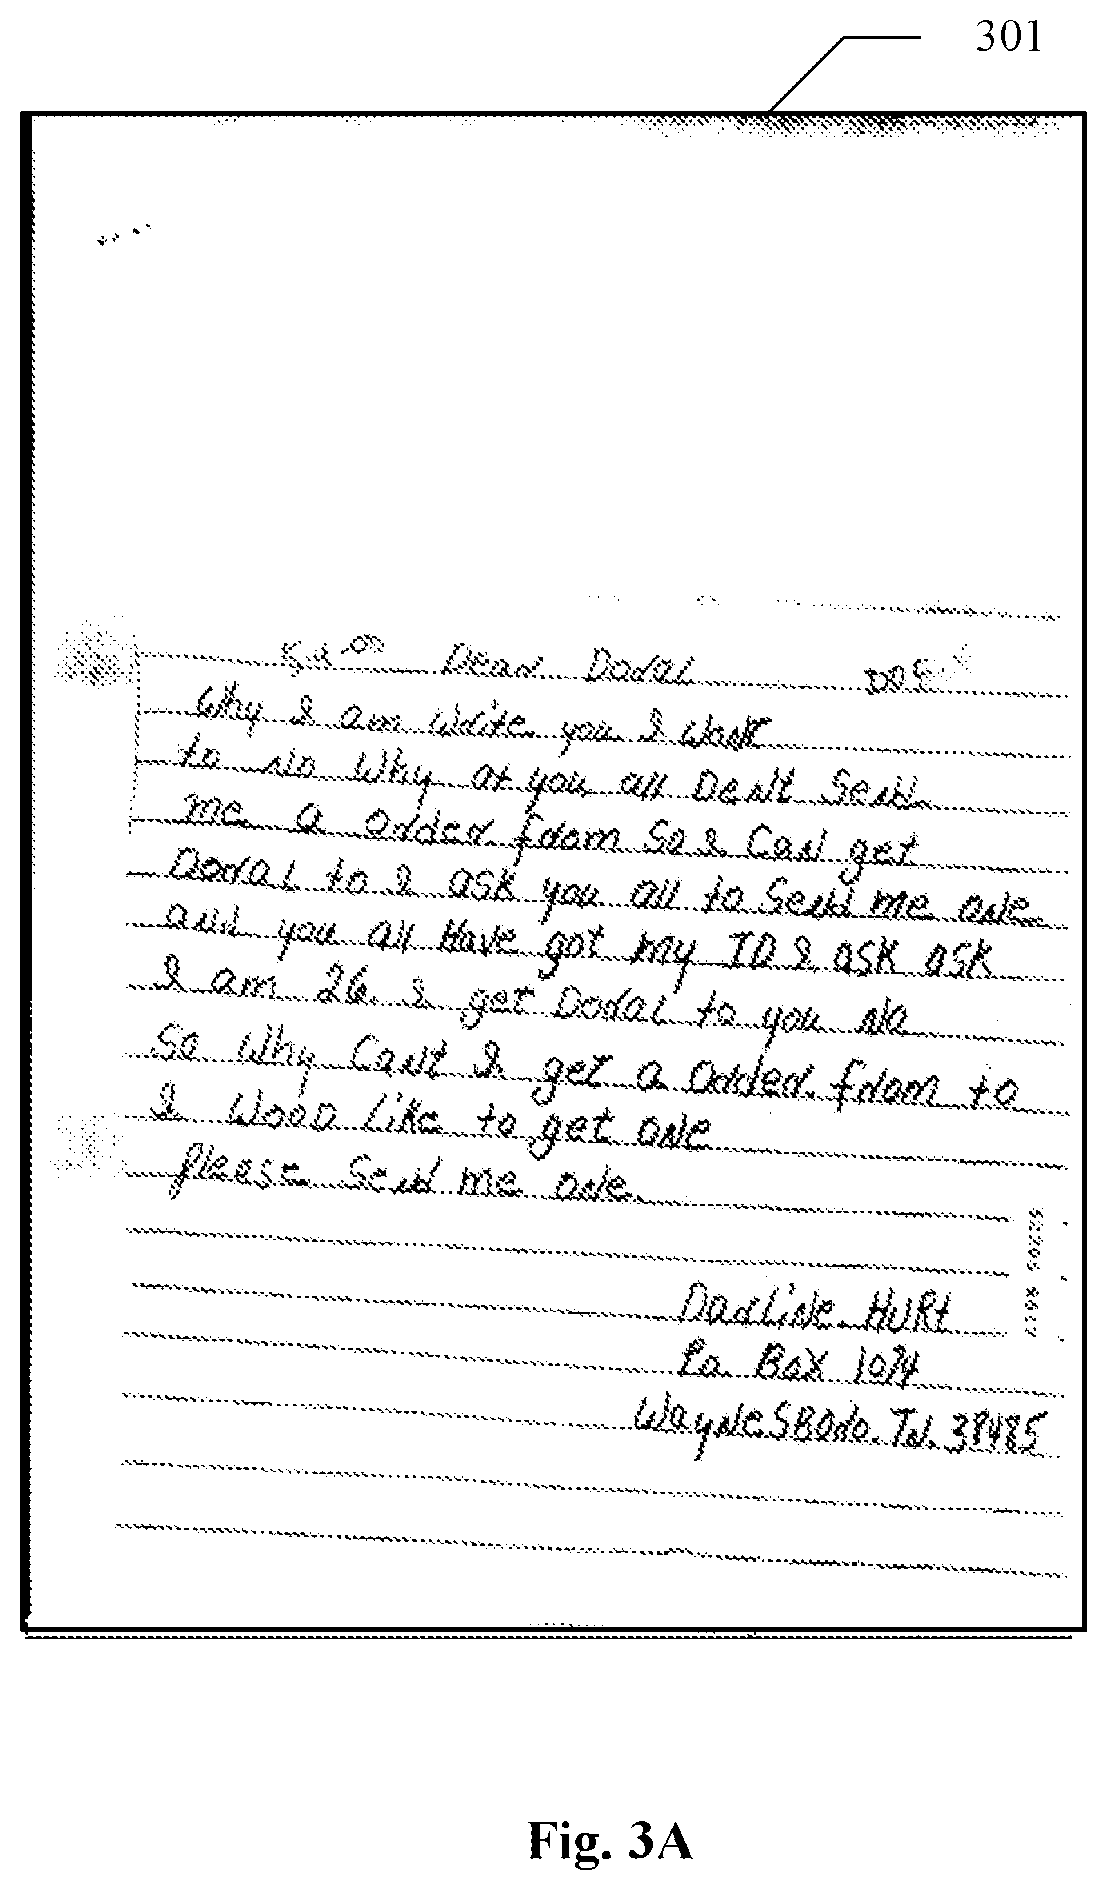 301
Dear Doral
Why I am write you I want
to no why at you all Dent Send
me a order from So I Can get
Doral to I ask you all to Send me one
and you all Have got my ID I ask ask
I am 26. I get Doral to you No
So Why Cant I get a Order from to
I Wood Like to get one
please Send me one.
Darline Hurt
Po. Box 1074
WaynesBoro. TN. 38485
Fig. 3A